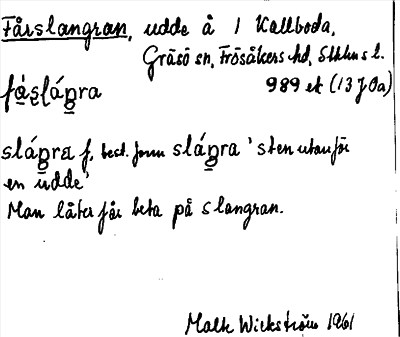 Fårslangran, udde å 1 Kallboda,
Gräsö sn, Frösåkers hd, Sthlms l.
989 ek (13 J 0a)
fáslápra
slápra f, best. form slápra 'sten utanför
en udde'
Man låter får beta på slangran.
Malte Wickström 1961